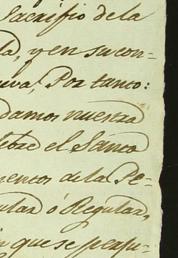 Sacrificio de la
da, y en su con-
iva, Por tanto:
damos nuestra
lebre el Santo
mentos de la Pe-
ular ó Regular,
in que se perju-